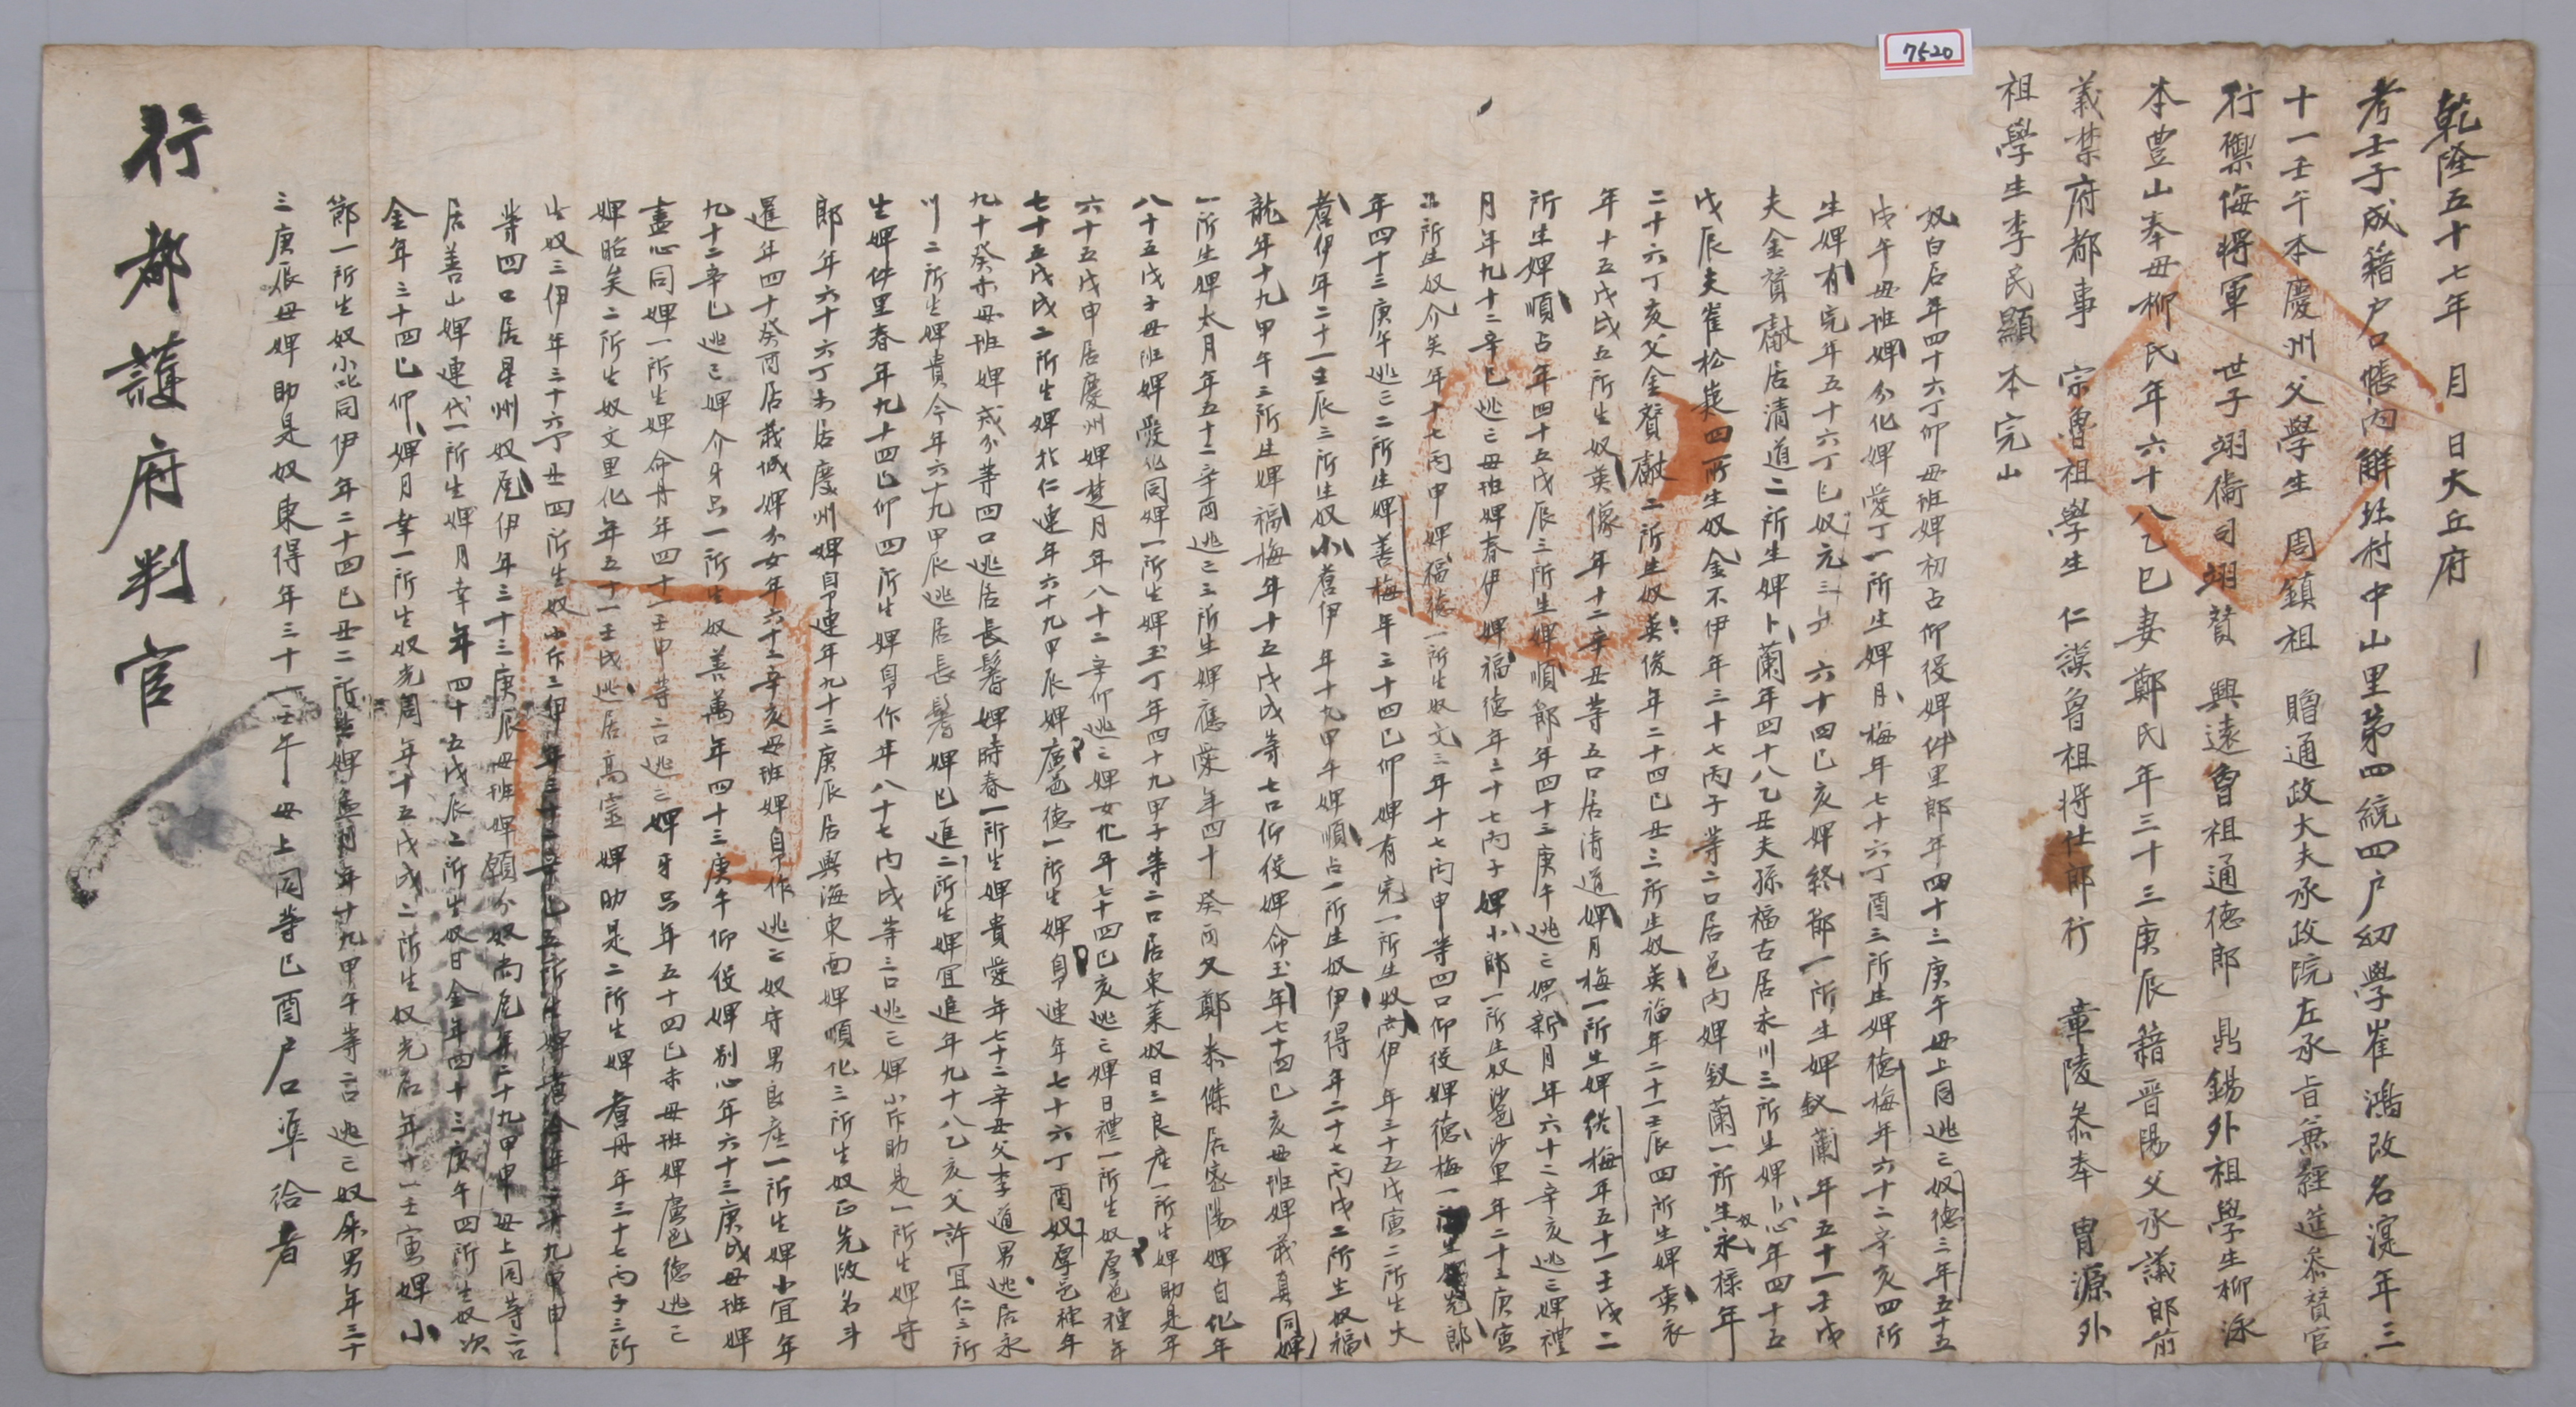 7520
乾隆五十七年 月 日大丘府
考壬子成籍户口帳內解北村中山里第四統四户幼學崔鴻改名湜年三
十一壬午本慶州父學生 周鎮祖 贈通政大夫承政院左承旨兼經筵叅贊官
行禦侮將軍 世子翊衛司翊贊 興遠曾祖通德郎 鼎錫外祖學生柳泳
本豊山奉母柳氏年六十八乙巳妻鄭氏年三十三庚辰籍晋陽父承議郎前
義禁府都事 宗魯祖學生 仁謨曾祖將仕郎行 章陵叅奉 胄源外
祖學生李民顯本完山
奴白石年四十六丁卯母班婢初占仰役婢件里郎年四十三庚午母上同逃亡奴德三年五十五
戊午母班婢分化婢愛丁一所生婢月梅年七十六丁酉三所生婢德梅年六十二辛亥四所
生婢有完年五十六丁巳奴元三年 六十四己亥婢終郎一所生婢釵蘭年五十一壬戌
夫金贊獻居清道二所生婢卜蘭年四十八乙丑夫孫福古居永川三所生婢卜心年四十五
戊辰夫崔松嵬四所生奴金不伊年三十七丙子等二口居邑內婢釵蘭一所生奴永祿年
二十六丁亥父金贊獻二所生奴英俊年二十四己丑三所生奴英福年二十一壬辰四所生婢英衣
年十五戊戌五所生奴英像年十二辛丑等五口居清道婢月梅一所生婢終梅年五十一壬戌二
所生婢順占年四十五戊辰三所生婢順郎年四十三庚午逃亡婢新月年六十二辛亥逃亡婢禮
月年九十二辛巳逃亡母班婢春伊 婢福德年三十七丙子婢小郎一所生奴鯊沙里年二十三庚寅
二所生奴介矣年十七丙申婢福德一所生奴文三年十七丙申等四口仰役婢德梅一所生
年四十三庚午逃亡二所生婢善梅年三十四己卯婢有完一所生奴尚伊年三十五戊寅二所生大
耉伊年二十一壬辰三所生奴小耉伊年十九甲午婢順占一所生奴伊得年二十七丙戌二所生奴福
龍年十九甲午三所生婢福梅年十五戊戌等七口仰役婢命玉年七十四己亥母班婢莪真同婢
一所生婢太月年五十二辛酉逃亡三所生婢應葉年四十癸酉父鄭泰傑居密陽婢自化年
八十五戊子母班婢愛化同婢一所生婢玉丁年四十九甲子等二口居東萊奴日三良産一所生婢助是年
六十五戊申居慶州婢楚月年八十二辛卯逃亡婢女化年七十四己亥逃亡婢日禮一所生奴厚邑種年
七十五戊戌二所生婢於仁連年六十九甲辰婢廣邑德一所生婢自連年七十六丁酉奴厚邑種年
九十癸未母班婢戒分等四口逃居長鬐婢時春一所生婢貴愛年七十二辛丑父李道男逃居永
川二所生婢貴今年六十九甲辰逃居長鬐婢巳進二所生婢宜進年九十八乙亥父許宜仁三所
生婢件里春年九十四己卯四所生婢自作年八十七丙戌等三口逃亡婢小斤助是一所生婢守
郎年六十六丁未居慶州婢自連年九十三庚辰居興海東面婢順化三所生奴正先改名斗
暹年四十癸酉居義城婢分女年六十二辛亥母班婢自作逃亡奴守男良産一所生婢小宜年
九十二辛巳逃亡婢介牙只一所生奴善萬年四十三庚午仰役婢別心年六十三庚戌母班婢
盡心同婢一所生婢命丹年四十一壬申等二口逃亡婢牙只年五十四己未母班婢廣邑德逃亡
婢昭矣二所生奴文里化年五十一壬戌逃居高靈婢助是二所生婢耉丹年三十七丙子三所
生奴三伊年三十六丁丑四所生奴小斤三伊年三十二辛巳五所生婢
等四口居星州奴尾伊年三十三庚辰母班婢領分奴尚尾年二十九甲申母上同等二口
居善山婢連代一所生婢月幸年四十五戊辰二所生奴日金年四十三庚午四所生奴次
金年三十四己卯婢月幸一所生奴光周年十五戊戌二所生奴光石年十一壬寅婢小
節一所生奴小同伊年二十四己丑二所生婢 年十九甲午等二口逃亡奴 男年三十
三庚辰母婢助是奴東得年三十一壬午母上同等己酉户口準給者
行都護府判官